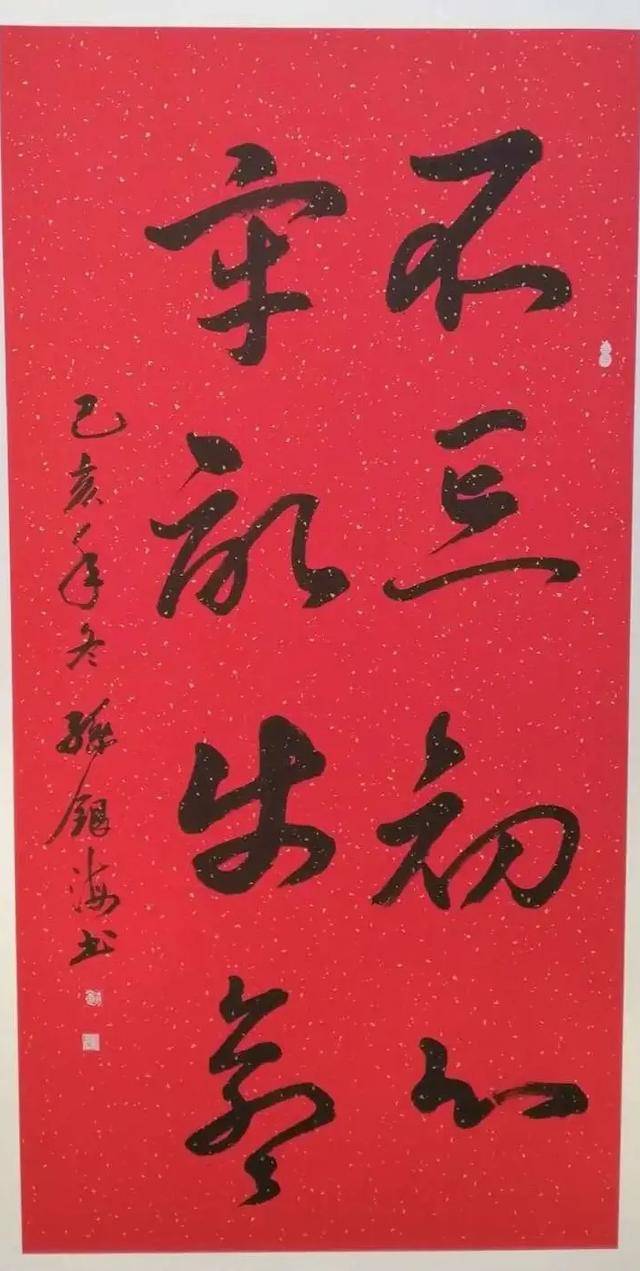 不忘初心
牢记使命
己亥年冬 孙银海书